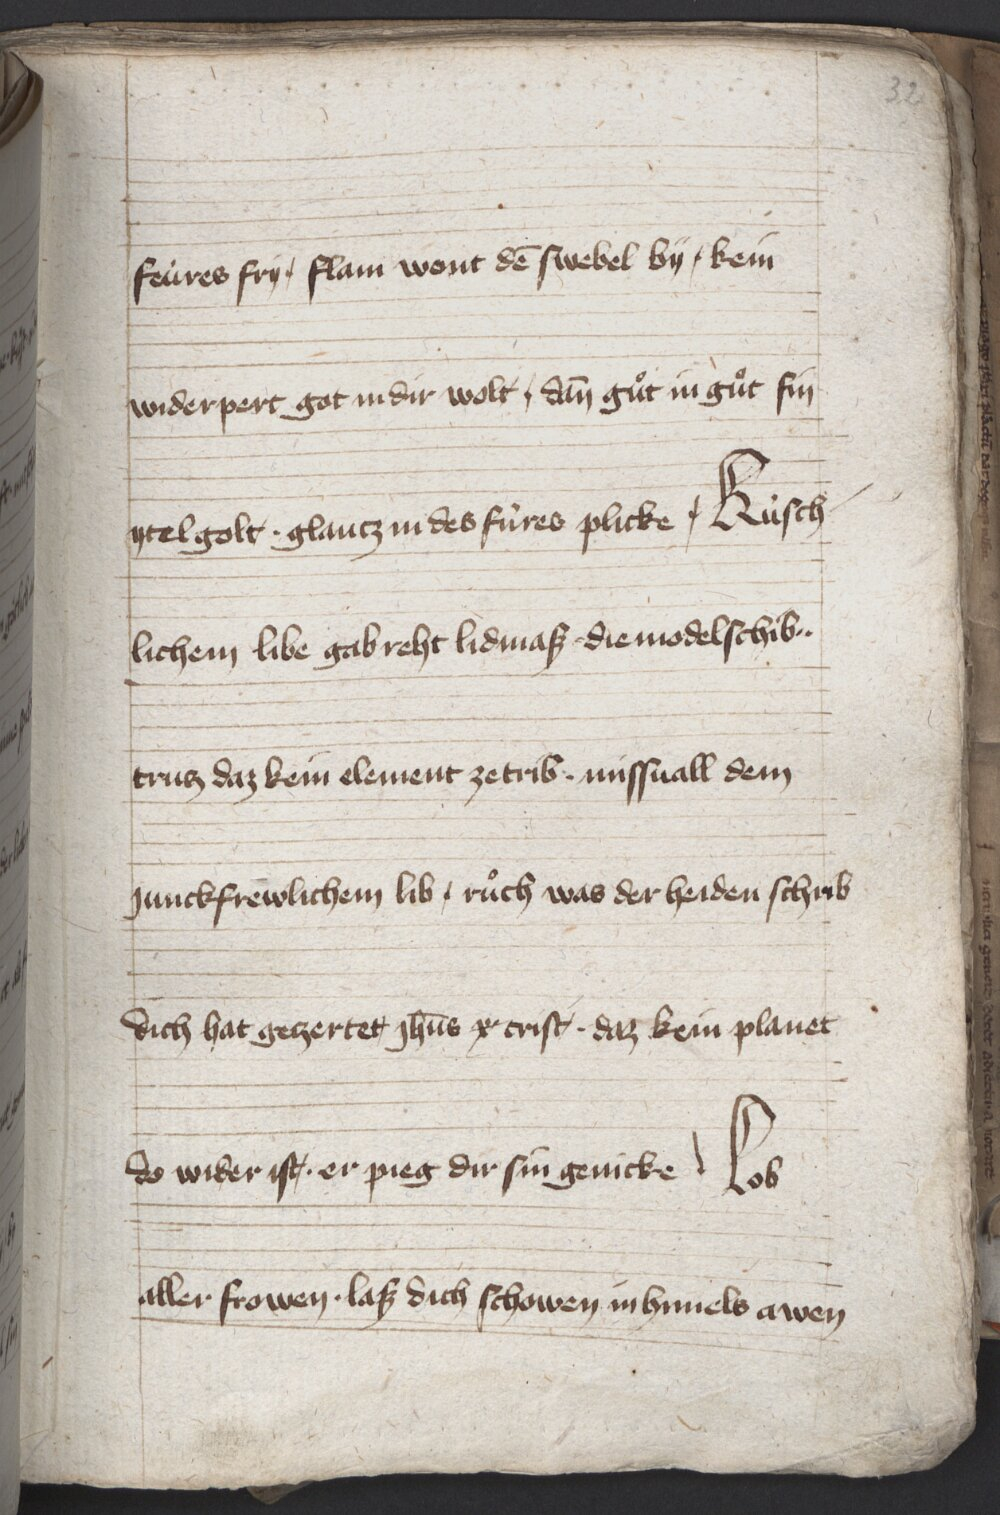 32
feúres frÿ / flam wont dē swebel bÿ / kein
widerpert got in dir wolt / dañ gůt in gůt sin
ytel golt · glantz in des fúres plicke / Kúsch
lichem libe gab reht lidmaß · die modelschib ··
trutz daz kein element zetrib · missuall dem
junckfrewlichem lib / růch was der heiden schrib
dich hat geczertet jhūs x̄ crist · daz kein planet
do wider ist · er pieg dir sin genicke / Lob
aller frowen · laß dich schowen in himels awen